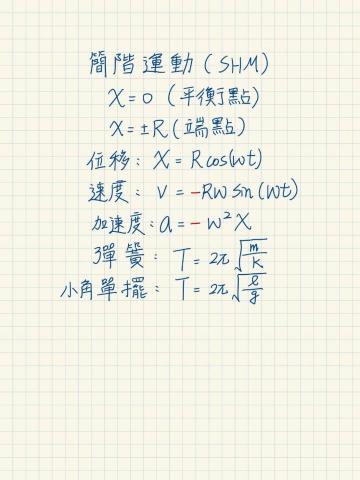 簡階運動(SHM)
X=0(平衡點)
X=±R(端點)
位移:X=Rcos(wt)
速度:V=-RWsin(wt)
加速度:a=-w²X
彈簧:T=2π√(m/k)
小角單擺:T=2π√(ℓ/g)